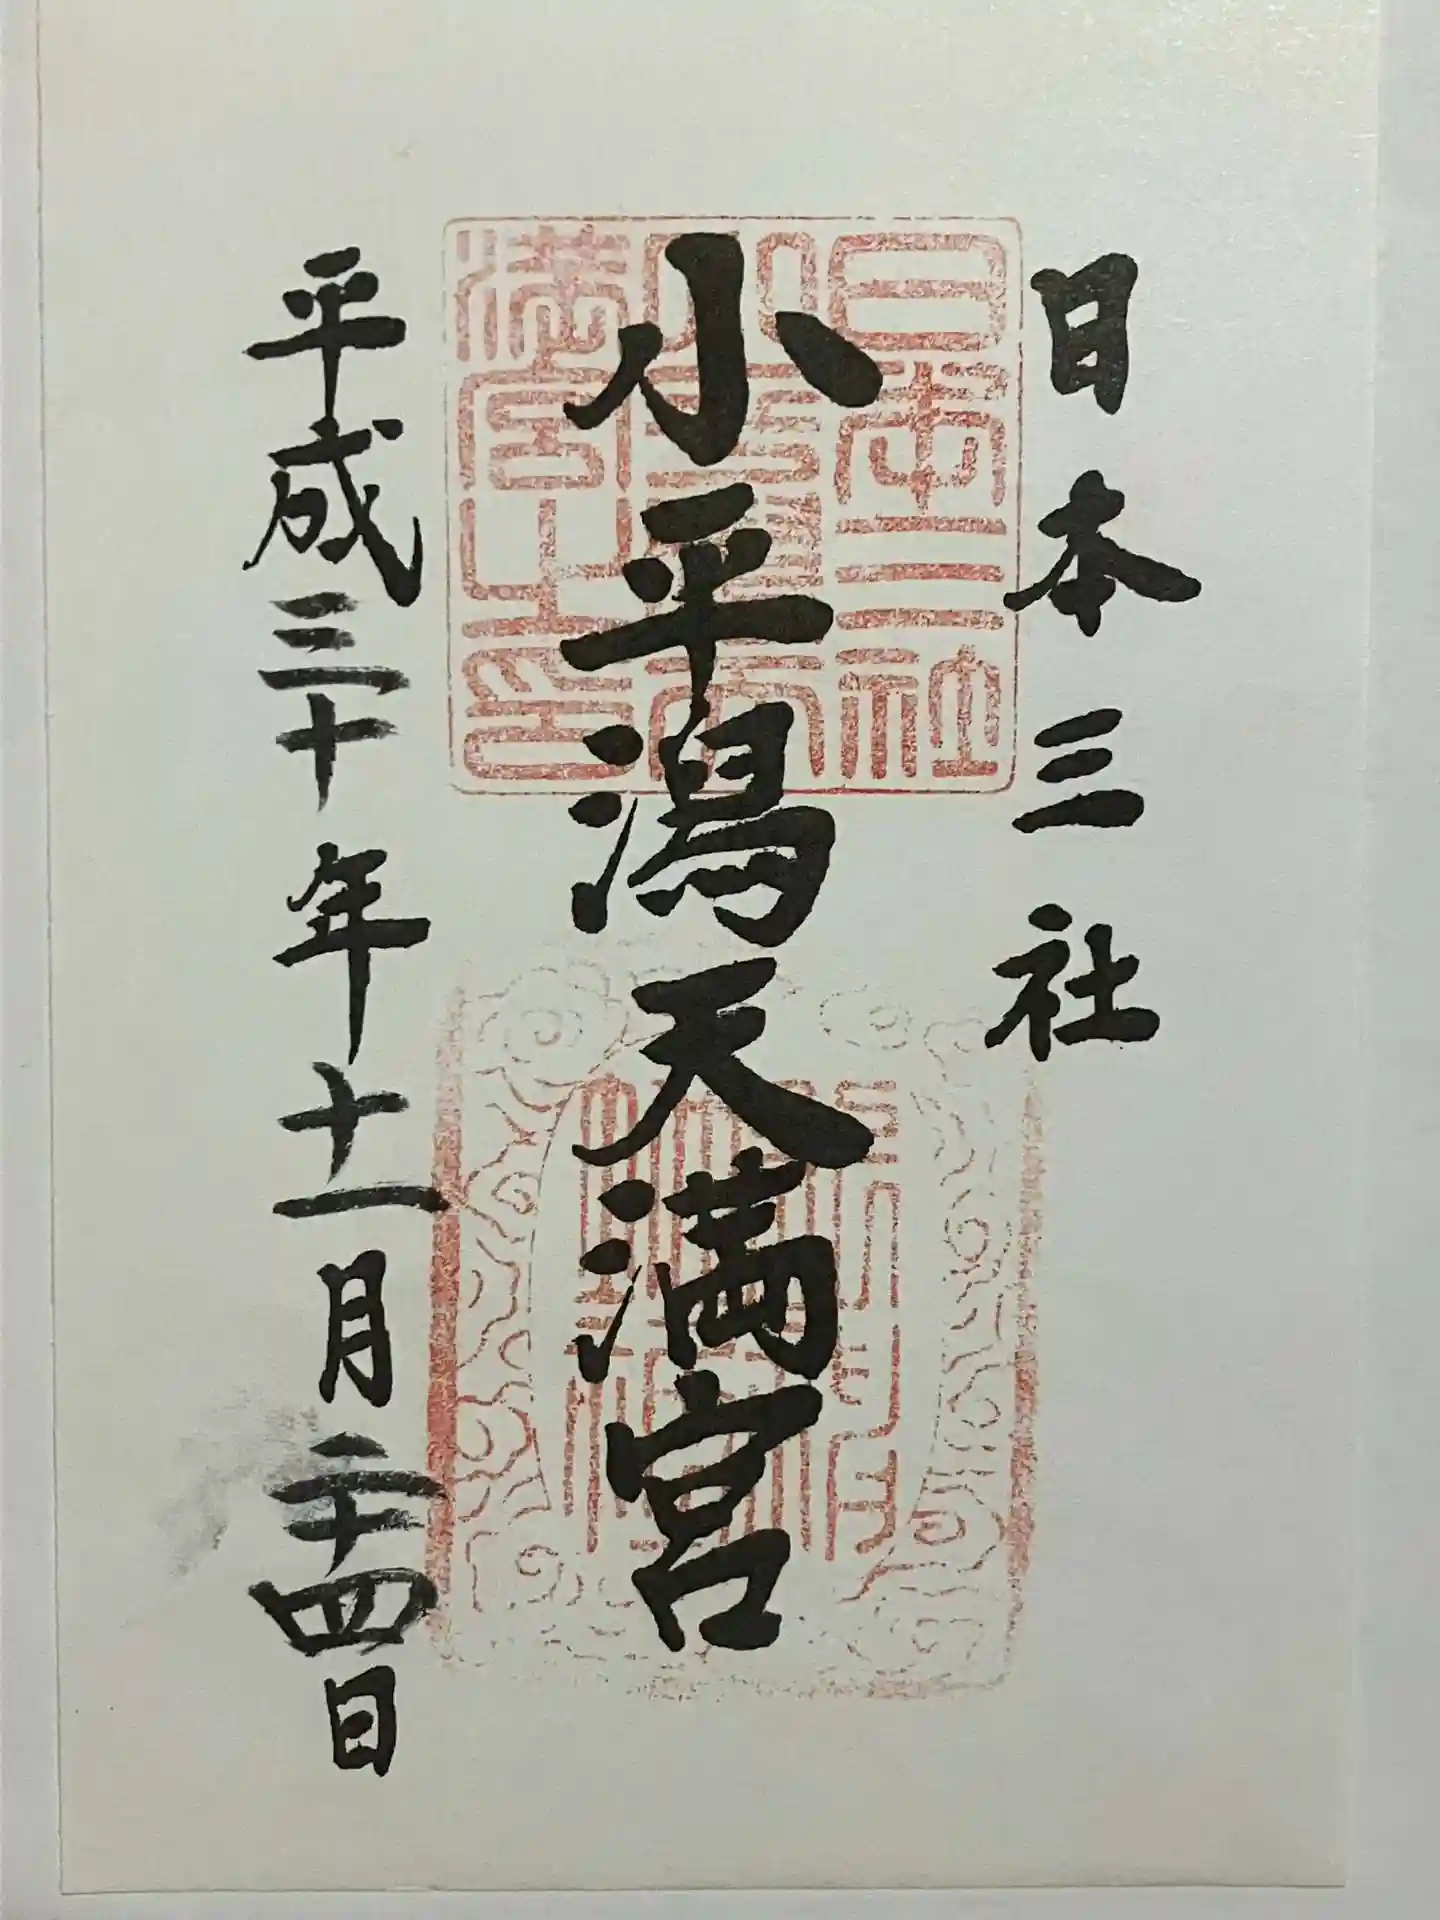 日本三社
小平潟天満宮
平成三十年十一月二十四日
日本三社
小平潟天
満宮之印